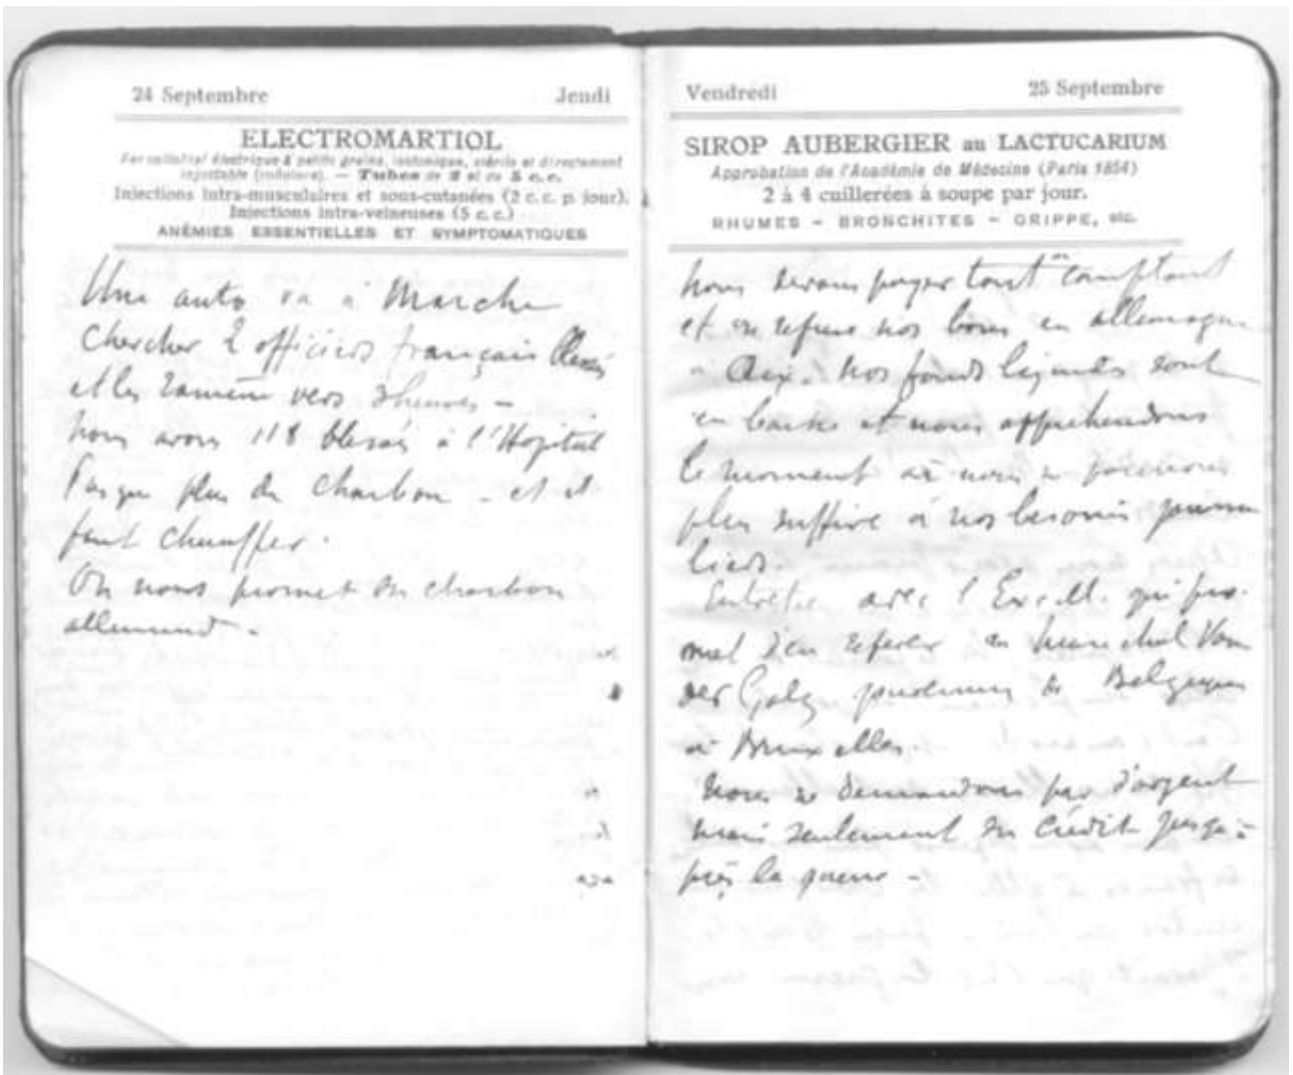 24 Septembre Jeudi
ELECTROMARTIOL
Fer colloïdal électrique à petits grains, isotonique, stérile et directement
injectable (indolore). — Tubes de 2 et de 5 c.c.
Injections intra-musculaires et sous-cutanées (2 c.c. p. jour).
Injections intra-veineuses (5 c.c.)
ANÉMIES ESSENTIELLES ET SYMPTOMATIQUES
Une auto va à Marche
chercher 2 officiers français blessés
et les ramène vers 3 heures –
Nous avons 118 blessés à l'Hopital
Presque plus de charbon – et il
faut chauffer.
On nous promet du charbon
allemand –
Vendredi 25 Septembre
SIROP AUBERGIER au LACTUCARIUM
Approbation de l'Académie de Médecine (Paris 1854)
2 à 4 cuillerées à soupe par jour.
RHUMES – BRONCHITES – GRIPPE, etc.
Nous devons payer tout au comptant
et on refuse nos bons en allemagne
à Aix. Nos fonds liquides sont
en baisse et nous appréhendons
le moment où nous ne pourrons
plus suffire à nos besoins journa
liers.
Entretien avec l'Exc. M. qui pro-
met d'en référer au marechal Von
der Golz gouverneur de Belgique
à Bruxelles.
Nous ne demandons pas d'argent
mais seulement du crédit jusqu'à-
près la guerre –